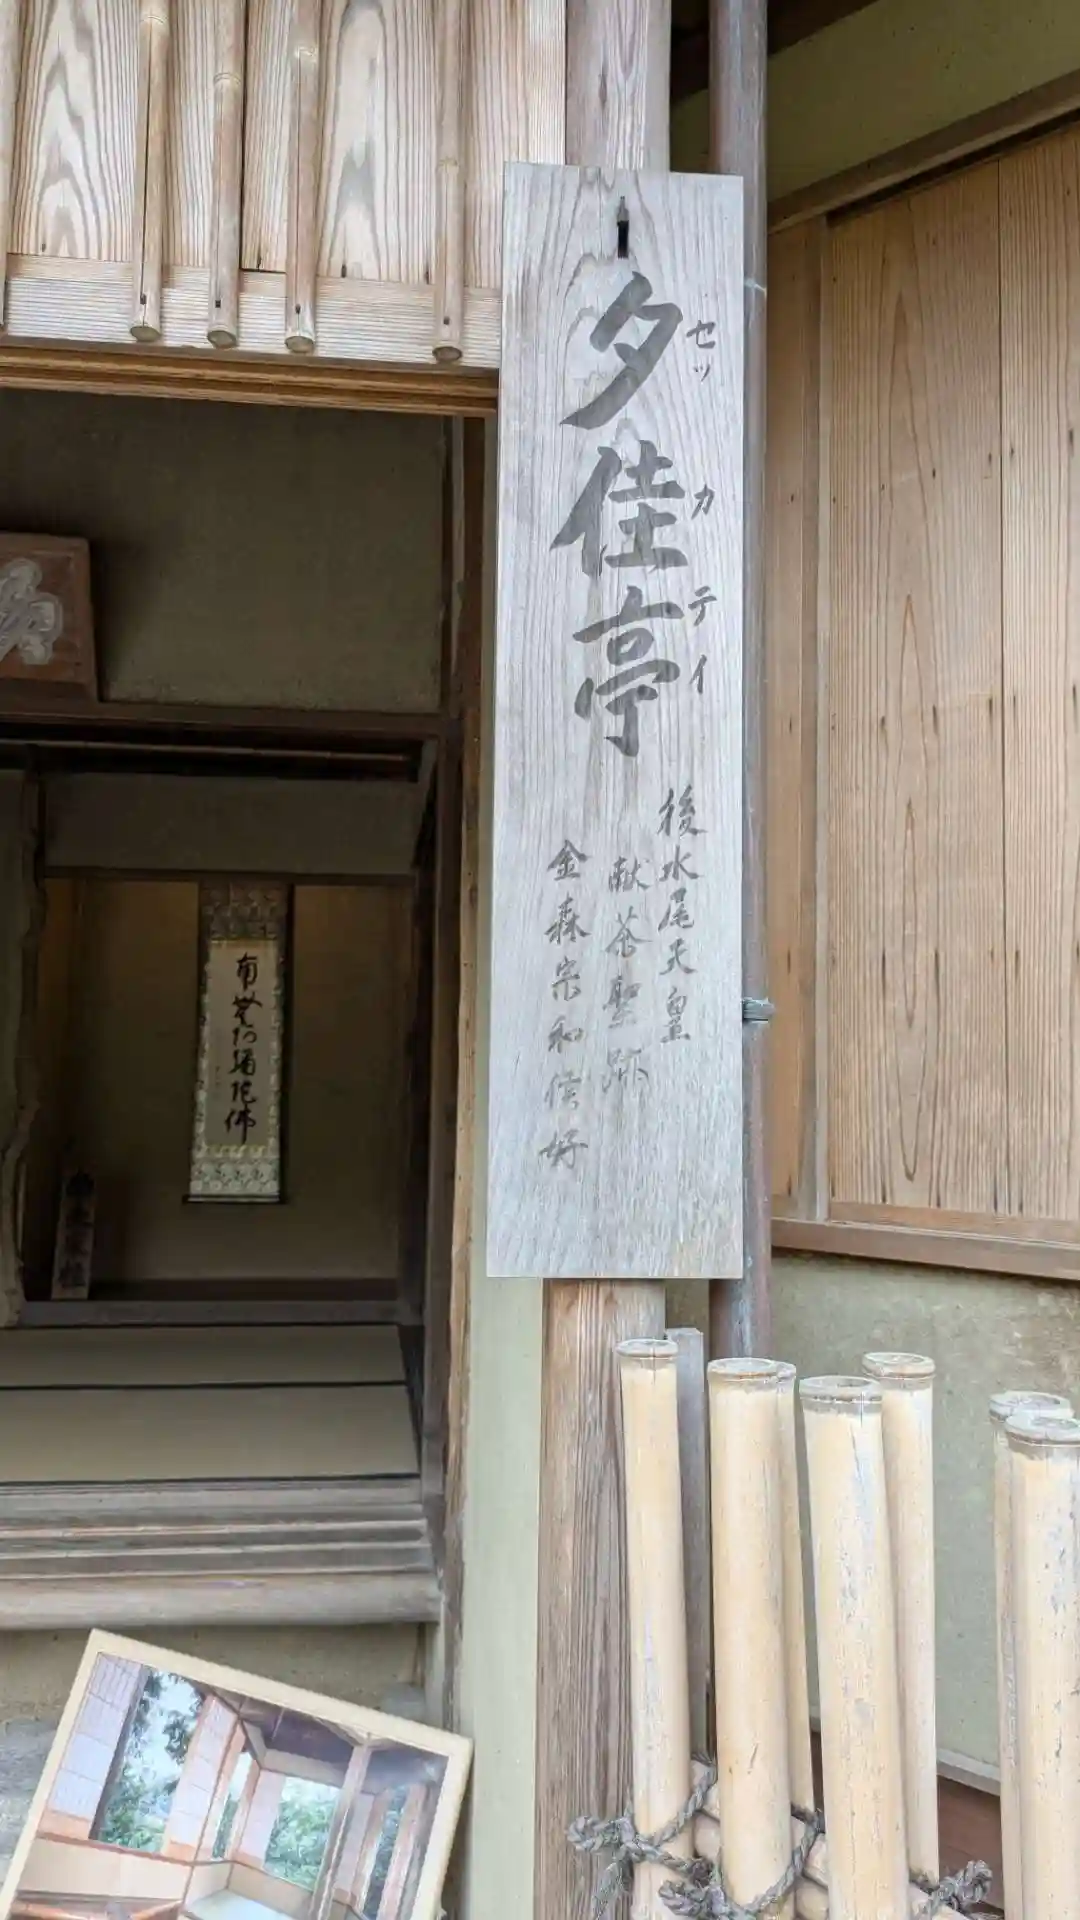 夕佳亭
セッカテイ
後水尾天皇
献茶聖跡
金森宗和侯好
南無阿弥陀佛